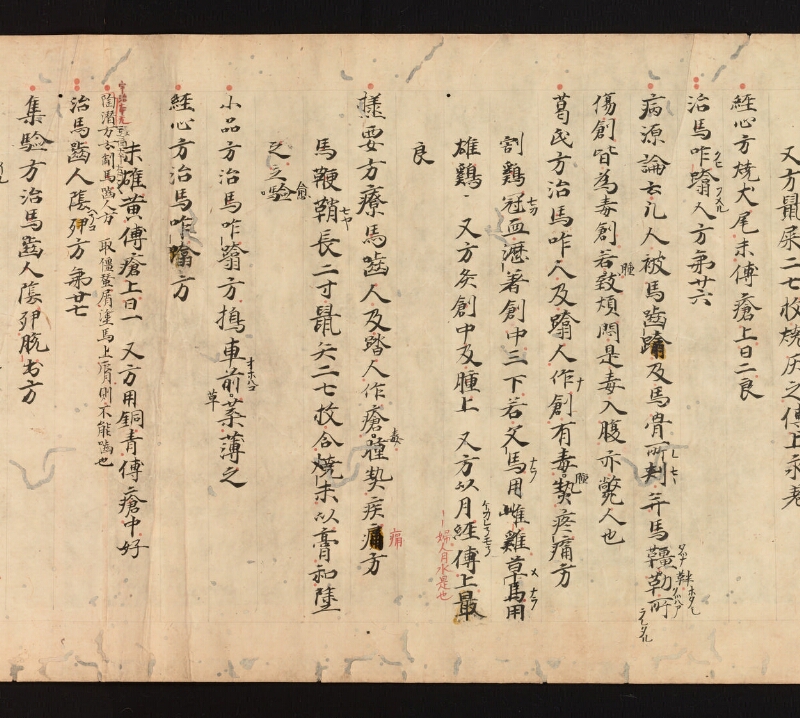 又方鼠屎二七枚燒灰之傅上
經心方燒犬尾末傅瘡上日二良
治馬咋蹹人方第廿六
病源論云凡人被馬齒蹹及馬骨所刺并馬韁靽勒所
傷創皆為毒創若腫數煩悶是毒入腹亦斃人也
葛氏方治馬咋人及蹹人作創有毒腫熱疼痛方
割鷄冠血瀝著創中三下若父馬用雌雞草馬用
雄鷄 又方灸創中及腫上 又方以月經傅上最
婦人月水是也
良
極要方療馬齒人及踏人作瘡毒腫熱疾痛方
馬鞭鞘長二寸鼠矢二七枚合燒末以膏和塗
之立驗愈
小品方治馬咋蹹方搗車前草葉薄之
經心方治馬咋蹹方
末雄黃傅瘡上日一 又方用銅青傅瘡中好
取僵蠶屑塗馬上脣則不能齒也
治馬齒人陰卵方第廿七
集驗方治馬齒人陰卵脫出方